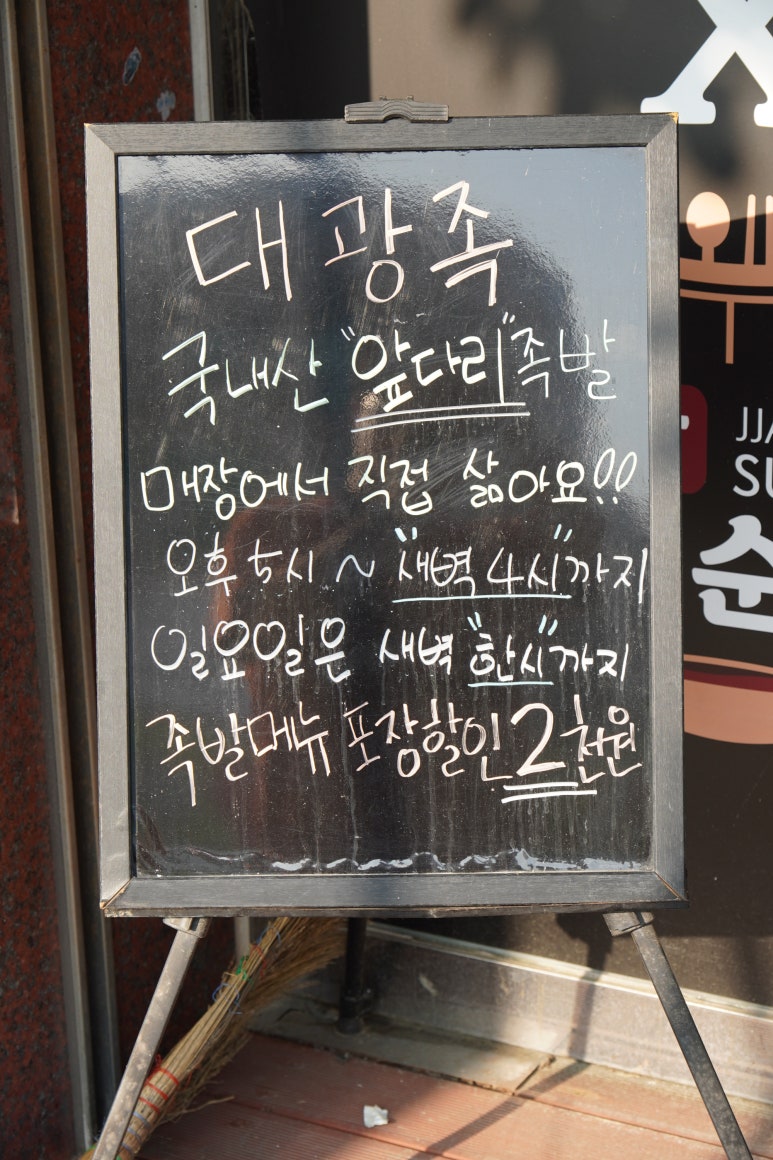 대광족
국내산 "앞다리" 족발
매장에서 직접 삶아요!!
오후 5시 ~ "새벽 4시"까지
일요일은 새벽 "한시"까지
족발메뉴 포장할인 2천원
X
JJA
SU
순